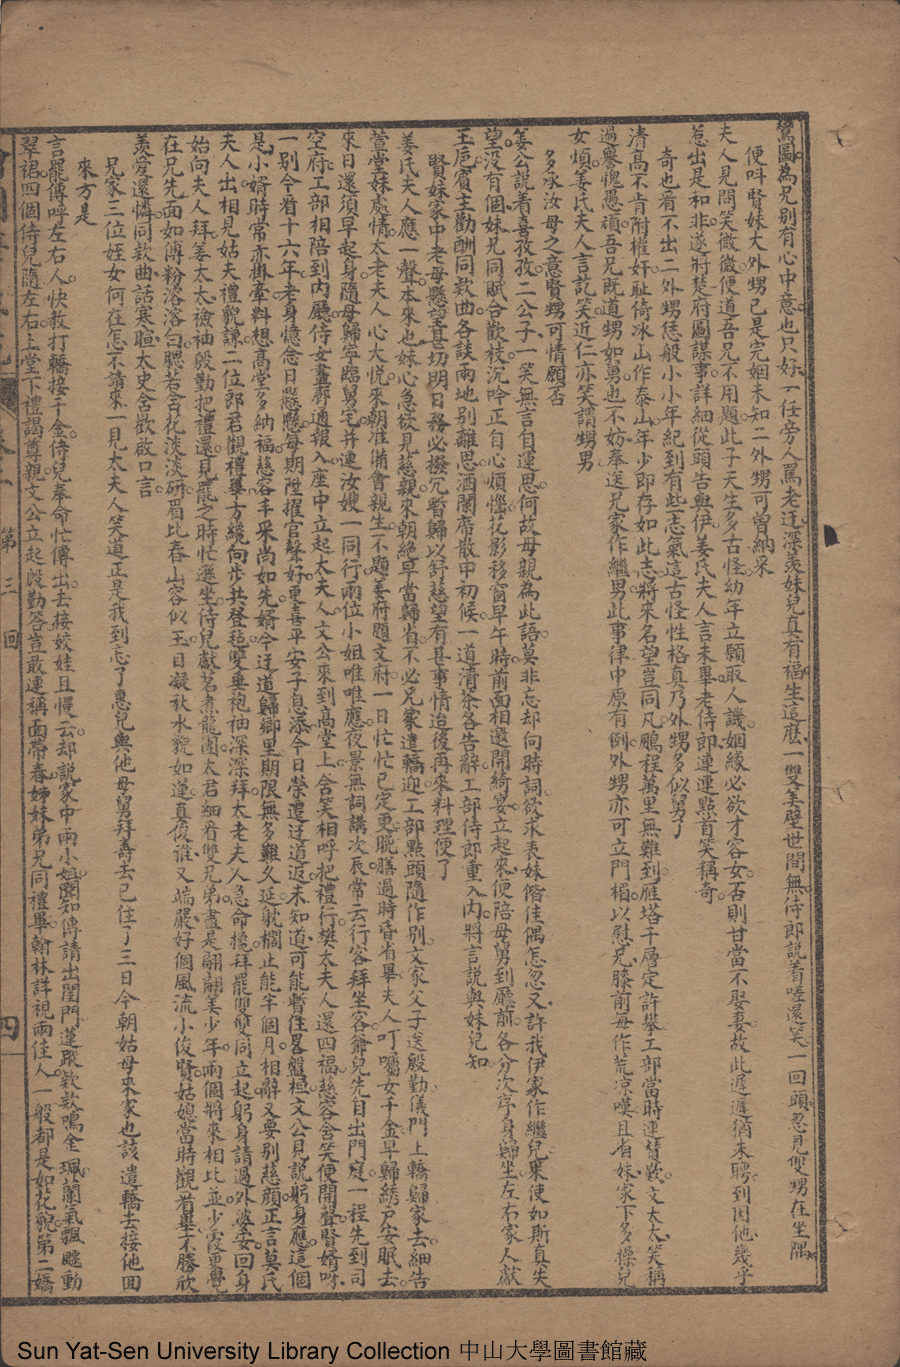 鴛圖為兄別有心中意也只好一任旁人罵老迂深羡妹兒真有福生這麽一雙美璧世間無侍郎說着嗟還笑一回頭忽見雙甥在坐隅
便呌賢妹大外甥已是完姻未知二外甥可曾納采
夫人見問笑微微便道吾兄不用題此子天生多古怪幼年立願取人譏姻緣必欲才容女否則甘當不娶妻故此遲遲猶未聘到因他幾乎
惹出是和非遂將楚府圖謀事詳細從頭告與伊姜氏夫人言未畢老侍郎連連點首笑稱奇
奇也看不出二外甥恁般小小年紀到有些志氣這古怪性格真乃外甥多似舅了
清髙不肯附權奸耻倚冰山作泰山年少即存如此志將來名望豈同凡鵬程萬里無難到雁塔千層定許攀工部當時連贊歎文太太笑稱
過譽愧愚頑吾兄既道甥如舅也不妨奉送兄家作繼男此事律中原有例外甥亦可立門楣以慰兄膝前每作荒凉嘆且省妹家下多操兒
女煩姜氏夫人言訖笑近仁亦笑謂甥男
多承汝母之意賢甥可情願否
姜公說着喜孜孜二公子一笑無言自運思何故母親為此語莫非忘却向時詞欲求表妹偕佳偶怎忽又許我伊家作繼兒果使如斯真失
望没有個妹兄同賦合歡枝沉吟正自心煩惱花影移窗早午時前面相邀開綺宴立起來便陪母舅到廳前各分次序身歸坐左右家人獻
玉巵賓主勸酬同欵曲各談兩地別離思酒闌席散中初候一道清茶各告辭工部侍郎重入内將言說與妹兒知
賢妹家中老母懸望甚切明日務必撥冗暫歸以舒慈望有甚事情迨後再來料理便了
姜氏夫人應一聲本來也妹心急欲見慈親來朝絶早當歸省不必兄家遣轎迎工部點頭隨作別文家父子送殷勤儀門上轎歸家去細告
萱堂妹處情太老夫人心大悦來朝准備會親生不題姜府題文府一日忙忙已定更晚膳過時昏省畢夫人叮囑女千金早歸綉户安眠去
來日還須早起身隨母歸寧臨舅宅并連汝嫂一同行兩位小姐唯唯應夜景無詞講次辰常云行客拜坐客爺兒先自出門庭一程先到司
空府工部相陪到内廳侍女畫廊通報入座中立起太夫人文公來到髙堂上含笑相呼把禮行樊太夫人還四福慈容含笑便開聲賢婿呀
一別今着十六年老身憶念日懸懸每期陞擢官縣好更喜平安子息添今日榮遷迂道返未知道可能暫住畧盤桓文公見說躬身應這個
是小婿時常亦掛牽料想髙堂多納福慈容丰采尚如先婿今迂道歸鄉里期限無多難久延躭擱止能半個月相辭又要別慈顔正言莫氏
夫人出相見姑夫禮貌謙二位郎君觀禮畢方纔向步共登毡雙垂袍袖深深拜太老夫人急命攙拜罷雙雙同立起躬身請過外婆安回身
始向夫人拜姜太太襝袖殷勤把禮還見罷之時忙遜坐侍兒獻茗煮龍團太君細看雙兄弟盡是翩翩美少年兩個將來相比並少霞更覺
在兄先面如傅粉溶溶白腮若含花淡淡研眉比春山容似玉目凝秋水貌如蓮真俊雅又端嚴好個風流小俊賢姑媳當時觀看畢不勝欣
羨愛還憐同欵曲話寒暄太史含歡啟口言
兄家三位姪女何在怎不請來一見太夫人笑道正是我到忘了惠兒與他母舅拜壽去已住了三日今朝姑母來家也該遣轎去接他回
來方是
言罷傳呼左右人快教打轎接千金侍兒奉命忙傳出去接姣娃且慢云却說家中兩小姐聞知傳請出閨門蓮踪欵欵鳴金珮蘭氣飄飃動
翠裙四個侍兒隨左右上堂下禮謁尊親文公立起殷勤答豈敢連稱面帶春姊妹弟兄同禮畢翰林詳視兩佳人一般都是如花貌第二嬌
第三回
四
Sun Yat-Sen University Library Collection 中山大學圖書館藏